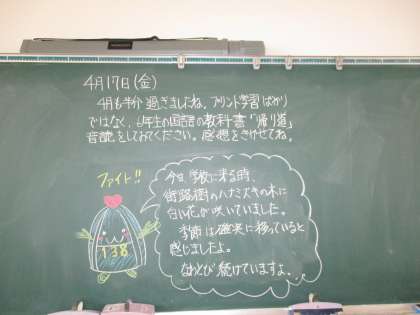 4月17日(金)
4月も半分過ぎましたね。プリント学習ばかり
ではなく、6年生の国語の教科書「帰り道」
音読をしておてください。感想をきかせてね。
ファイト!!
今日、学校に来る時、
街路樹のハナミズキの木に
白い花が咲いていました。
季節は確実に移っていると
感じましたよ。
なわとび続けていますよ...
138